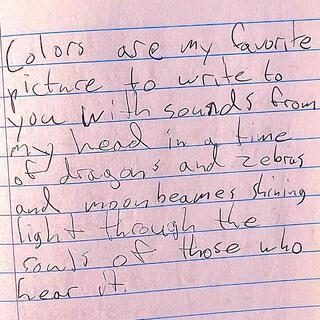 Colors are my favorite
picture to write to
you with sounds from
my head in a time
of dragons and zebras
and moonbeames shining
light through the
souls of those who
hear it.